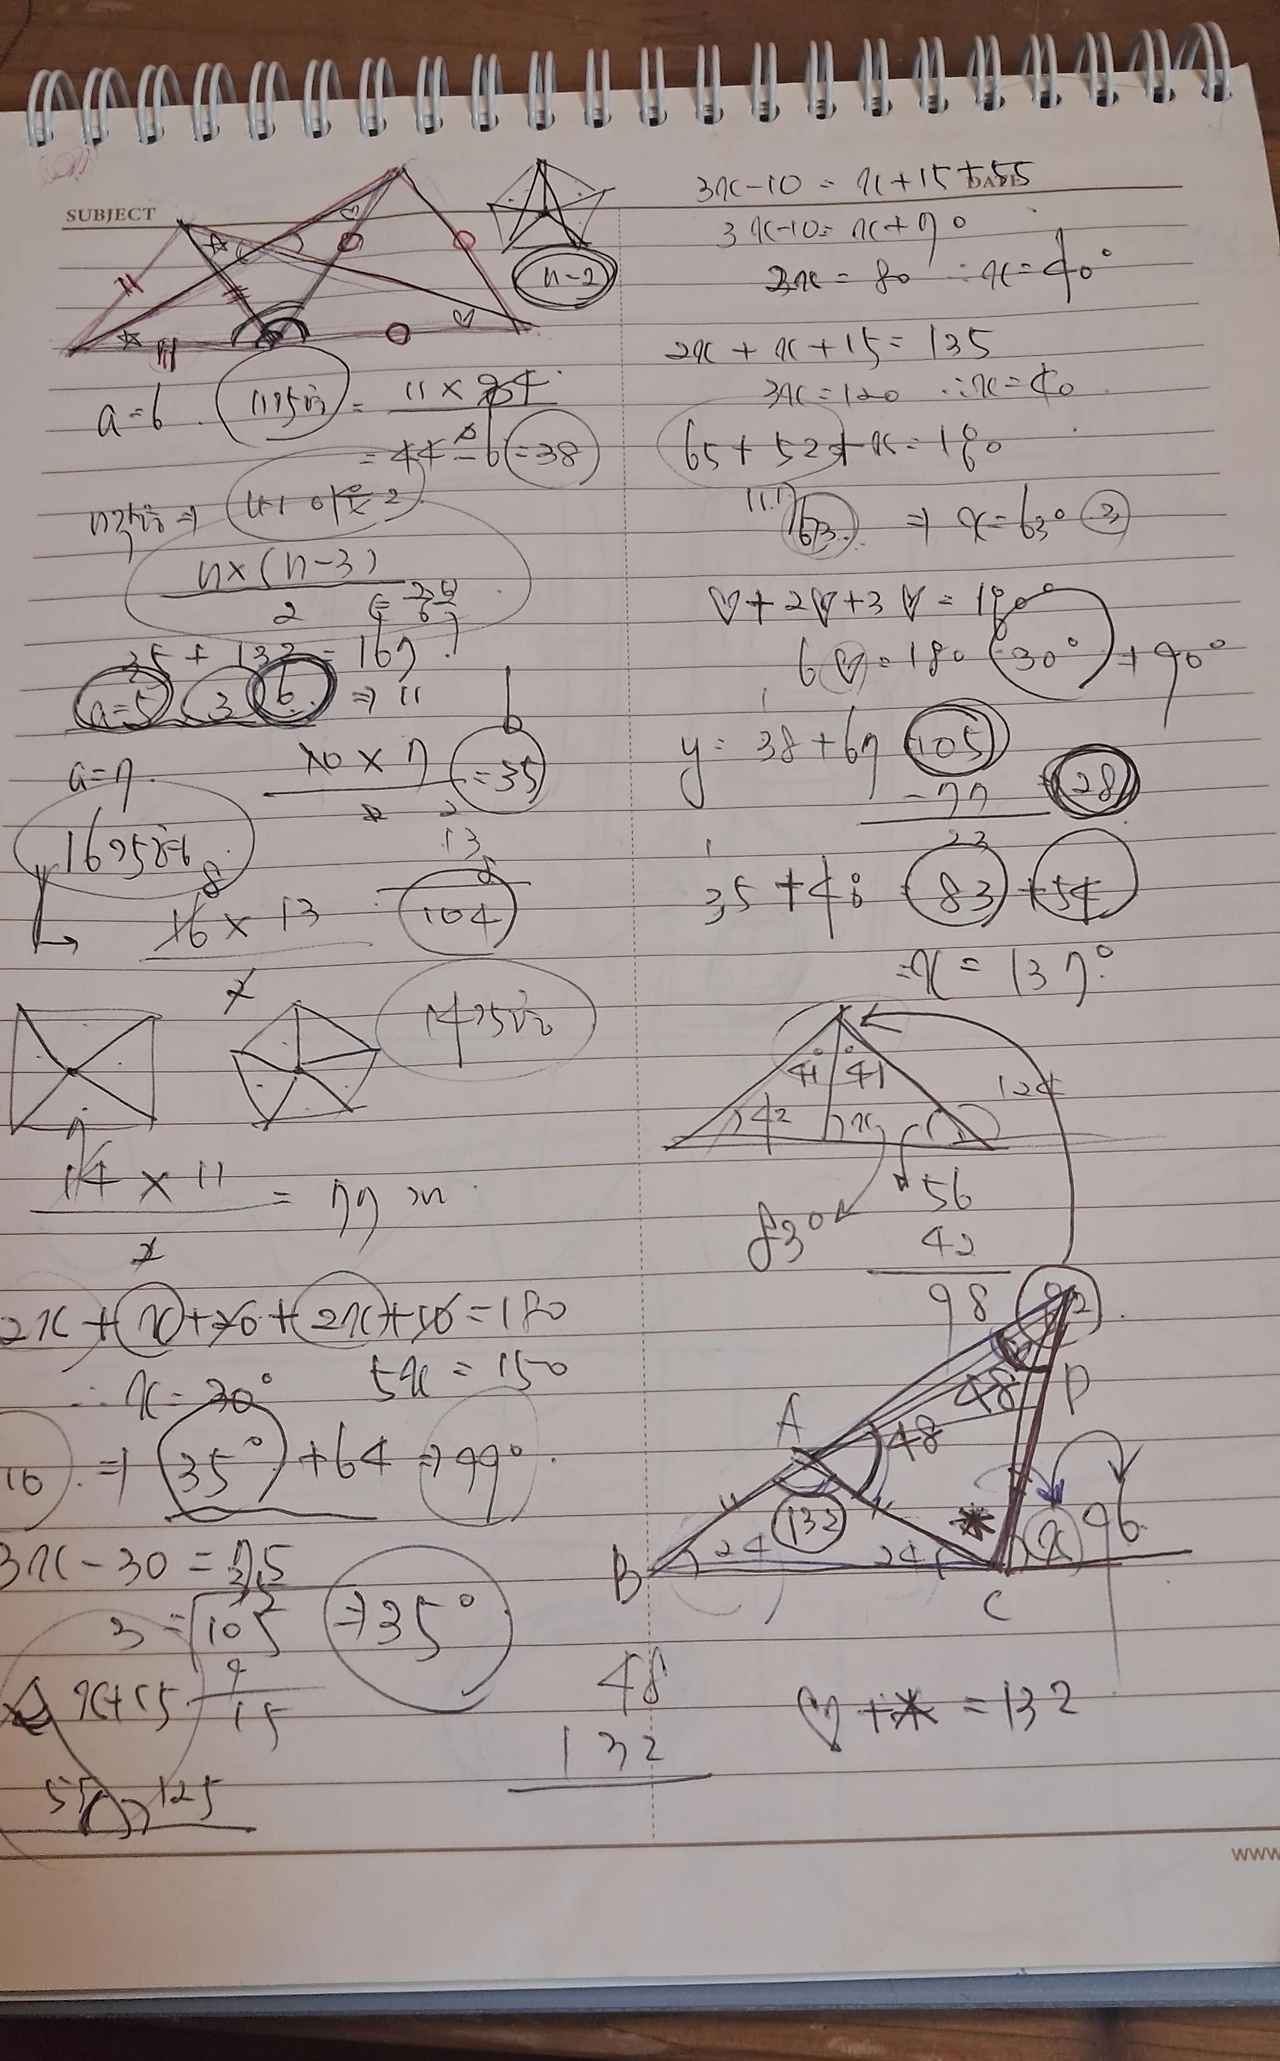 SUBJECT
DATE
n-2
a=6
= 44-6 = 38
n×(n-3)
2
35 + 132 = 167
a=5 3 6 ⇒ 11
a=7
10 × 7 = 35
2
13
8
104
16 × 13
2
14 × 11 =
2
2x + x + 26 + 2x + = 180
∴ x = 30° 5x = 150
⇒ 35° + 64 ⇒ 99°
3x - 30 = 75
3 = 105 ⇒ 35°
x+15
15
55 125
3x-10 = x+15+55
3x-10 = x+70
2x = 80 ∴ x = 40°
2x + x + 15 = 135
3x = 120 ∴ x = 40
65 + 52 + x = 180
117
63 ⇒ x = 63° ③
♡ + 2♡ + 3♡ = 180°
6♡ = 180 30° → 90°
y = 38 + 67 105
- 77 28
23
35 + 48 83 + 54
= x = 137°
41 41
42 x 124
56
83° 42
98
82
48 D
A 48
132 * x 96
B 24 24 C
48
132
♡ + * = 132
www